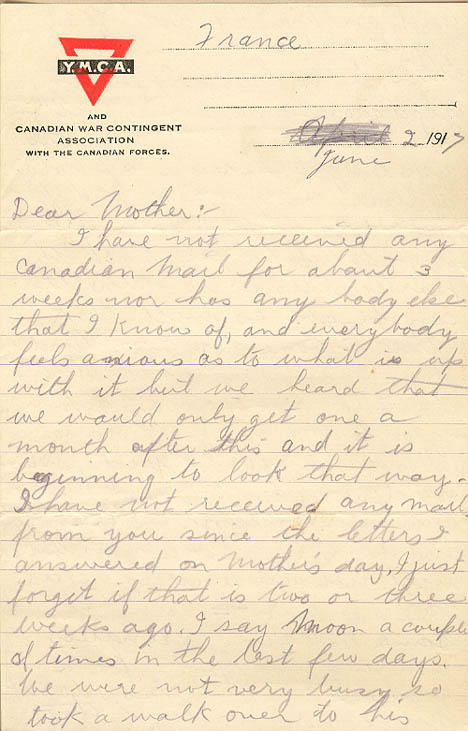 France
Y.M.C.A.
AND
CANADIAN WAR CONTINGENT
ASSOCIATION
WITH THE CANADIAN FORCES.
April 2 1917
June
Dear Mother:-
I have not received any
Canadian Mail for about 3
weeks nor has any body else
that I know of, and everybody
feels anxious as to what is up
with it but we heard that
we would only get one a
month after this and it is
beginning to look that way.
I have not received any mail
from you since the letters I
answered on Mother's day, I just
forget if that is two or three
weeks ago. I say Moon a couple
of times in the last few days.
We were not very busy so
took a walk over to his